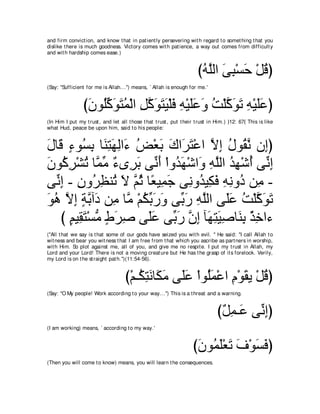 and firm conviction, and know that in patiently persevering with regard to something that you
dislike there is much goodness. Victory comes with patience, a way out comes from difficulty
and with hardship comes ease.)
(قُلْ حَسْبِىَ اللَّهُ)
(Say: "Sufficient for me is Allah...") means, `Allah is enough for me.'
(عَلَيْهِ تَوَكَّلْتُ وَعَلَيْهِ فَلْيَتَوَكَّلِ الْمُتَوَكِّلُونَ)
(In Him I put my trust, and let all those that trust, put their trust in Him.) (12: 67) This is like
what Hud, peace be upon him, said to his people:
(إِن نَّقُولُ إِلاَّ اعْتَرَاكَ بَعْضُ ءَالِهَتِنَا بِسُوءٍ قَالَ
إِنِّى أُشْهِدُ اللَّهِ وَاشْهَدُواْ أَنِّى بَرِىءٌ مِّمَّا تُشْرِكُونَ
- مِن دُونِهِ فَكِيدُونِى جَمِيعًا ثُمَّ لاَ تُنظِرُونِ - إِنِّى
تَوَكَّلْتُ عَلَى اللَّهِ رَبِّى وَرَبِّكُمْ مَّا مِن دَآبَّةٍ إِلاَّ هُوَ
ءَاخِذٌ بِنَاصِيَتِهَآ إِنَّ رَبِّى عَلَى صِرَطٍ مُّسْتَقِيمٍ )
("All that we say is that some of our gods have seized you with evil. " He said: "I call Allah to
witness and bear you witness that I am free from that which you ascribe as partners in worship,
with Him. So plot against me, all of you, and give me no respite. I put my trust in Allah, my
Lord and your Lord! There is not a moving creature but He has the grasp of its forelock. Verily,
my Lord is on the straight path.")(11:54-56).
(قُلْ يَقَوْمِ اعْمَلُواْ عَلَى مَكَانَتِكُمْ)
(Say: "O My people! Work according to your way...") This is a threat and a warning.
(إِنِّى عَـمِلٌ)
(I am working) means, `according to my way.'
(فَسَوْفَ تَعْلَمُونَ)
(Then you will come to know) means, you will learn the consequences.